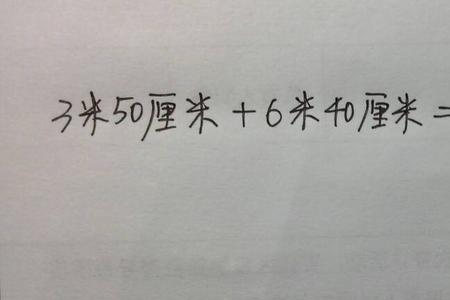 3米50厘米+6米40厘米=